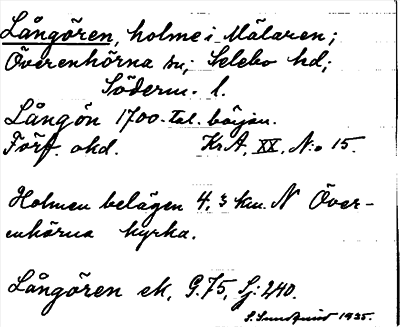 Långören, holme i Mälaren;
Överenhörna sn; Selebo hd;
Söderm. l.
Långön 1700-tal. början.
Förf. okd. Kr.A. XX, N:o 15.
Holmen belägen 4,3 km. N Över-
enhörna kyrka.
Långören ek. G.75, Sj: 240.
S. Sundquist 1935.